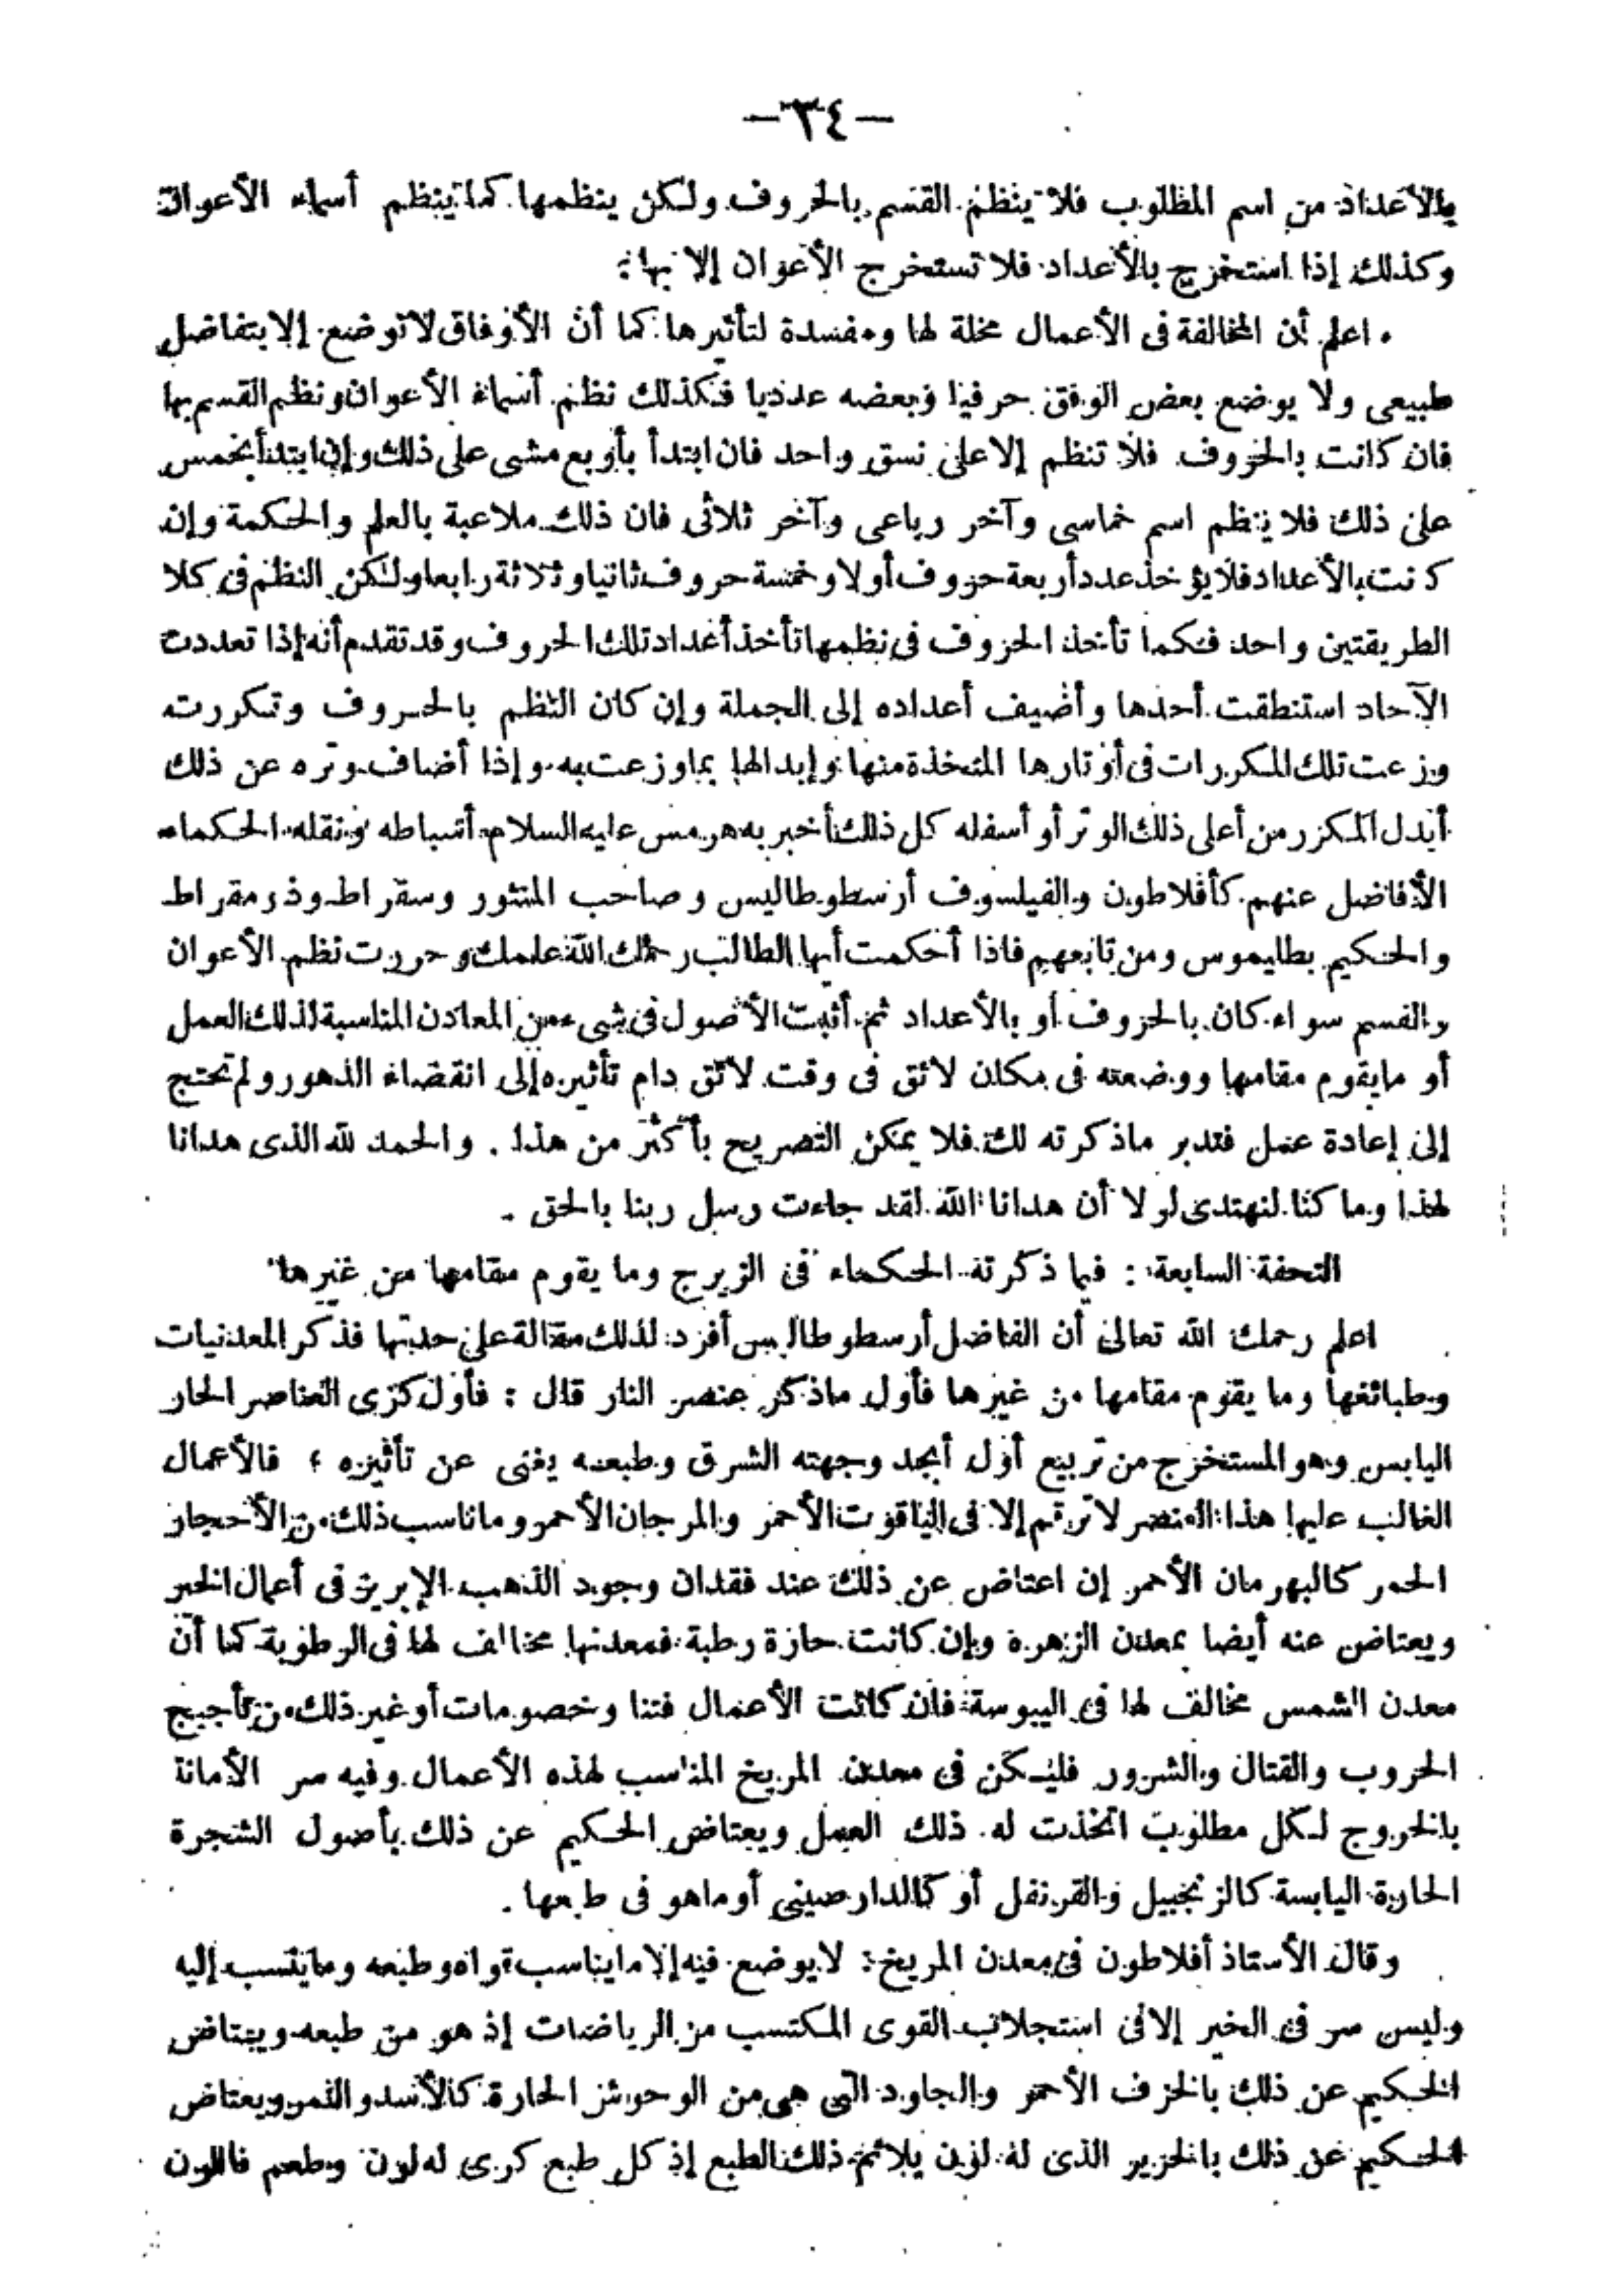 -٣٤-
بالأعداد من اسم المطلوب فلا ينظم القسم بالحروف ولكن ينظمها كما ينظم أسماء الأعوان
وكذلك إذا استخرج بالأعداد فلا تستخرج الأعوان إلا بها :
اعلم أن المخالفة فى الأعمال مخلة لها ومفسدة لتأثيرها كما أن الأوفاق لا توضع إلا بتفاضل
طبيعى ولا يوضع بعض الوفق حرفيا وبعضه عدديا فكذلك نظم أسماء الأعوان ونظم القسم بها
فان كانت بالحروف فلا تنظم إلا على نسق واحد فان ابتدأ بأربع مشى على ذلك وإن ابتدأ بخمس
على ذلك فلا ينظم اسم خماسى وآخر رباعى وآخر ثلاثى فان ذلك ملاعبة بالعلم والحكمة وإن
كانت بالأعداد فلا يؤخذ عدد أربعة حروف أولا وخمسة حروف ثانيا وثلاثة رابعا ولكن النظم فى كلا
الطريقتين واحد فكما تأخذ الحروف فى نظمها تأخذ أعداد تلك الحروف وقد تقدم أنه إذا تعددت
الآحاد استنطقت أحدها وأضيف أعداده إلى الجملة وإن كان النظم بالحروف وتكررت
وزعت تلك المكررات فى أوتارها المتخذة منها وإبدالها بما وزعت به وإذا أضاف وتره عن ذلك
أبدل المكرر من أعلى ذلك الوتر أو أسفله كل ذلك أخبر به هرمس عليه السلام أسباطه ونقله الحكماء
الأفاضل عنهم كأفلاطون والفيلسوف أرسطوطاليس وصاحب المنثور وسقراط وذرمقراط
والحكيم بطليموس ومن تابعهم فاذا أحكمت أيها الطالب رحمك الله علمك وحررت نظم الأعوان
والقسم سواء كان بالحروف أو بالأعداد ثم أثبت الأصول فى شىء من المعادن المناسبة لذلك العمل
أو مايقوم مقامها ووضعته فى مكان لائق فى وقت لائق دام تأثيره إلى انقضاء الدهور ولم تحتج
إلى إعادة عمل فتدبر ماذكرته لك فلا يمكن التصريح بأكثر من هذا . والحمد لله الذى هدانا
لهذا وما كنا لنهتدى لولا أن هدانا الله لقد جاءت رسل ربنا بالحق .
التحفة السابعة : فيما ذكرته الحكماء فى الزيرج وما يقوم مقامها من غيرها
اعلم رحمك الله تعالى أن الفاضل أرسطوطاليس أفرد لذلك مقالة على حدتها فذكر المعدنيات
وطبائعها وما يقوم مقامها من غيرها فأول ماذكر عنصر النار قال : فأول كرى العناصر الحار
اليابس وهو المستخرج من تربيع أول أبجد وجهته الشرق وطبعه يغنى عن تأثيره ؛ فالأعمال
الغالب عليها هذا العنصر لا ترقم إلا فى الياقوت الأحمر والمرجان الأحمر وما ناسب ذلك من الأحجار
الحمر كالبهرمان الأحمر إن اعتاض عن ذلك عند فقدان وجود الذهب الإبريز فى أعمال الخير
ويعتاض عنه أيضا بمعدن الزهرة وإن كانت حارة رطبة فمعدنها مخالف لها فى الرطوبة كما أن
معدن الشمس مخالف لها فى اليبوسة فان كانت الأعمال فتنا وخصومات أو غير ذلك من تأجيج
الحروب والقتال والشرور فليكن فى معدن المريخ المناسب لهذه الأعمال وفيه سر الأمانة
بالخروج لكل مطلوب اتخذت له ذلك العمل ويعتاض الحكيم عن ذلك بأصول الشجرة
الحارة اليابسة كالزنجبيل والقرنفل أو كالدارصينى أو ماهو فى طبعها .
وقال الأستاذ أفلاطون فى معدن المريخ : لا يوضع فيه إلا ما يناسب قواه وطبعه وما ينتسب إليه
وليس سر فى الخير إلا فى استجلاب القوى المكتسب من الرياضات إذ هو من طبعه ويعتاض
الحكيم عن ذلك بالخزف الأحمر والجلود التى هى من الوحوش الحارة كالأسد والنمر ويعتاض
الحكيم عن ذلك بالحرير الذى له لون يلائم ذلك الطبع إذ كل طبع كرى له لون وطعم فاللون